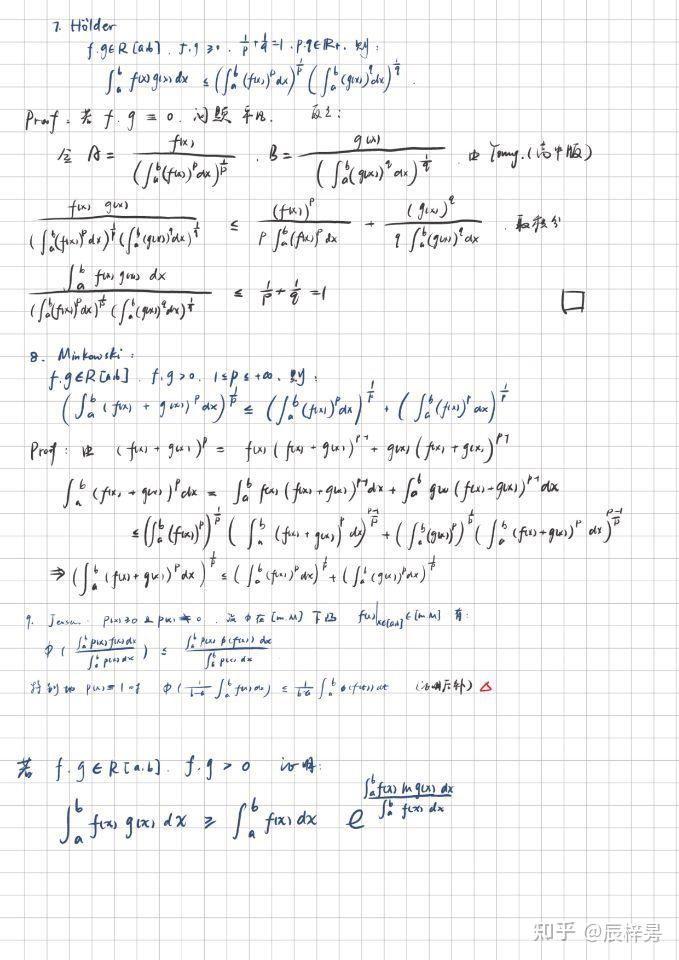 7. Hölder
f.g∈R[a.b]. f.g ≥ 0. 1/p + 1/q = 1. p.q∈R+. 则:
∫_a^b f(x)g(x)dx ≤ (∫_a^b (f(x))^p dx)^{1/p} (∫_a^b (g(x))^q dx)^{1/q}.
Proof: 若 f.g ≡ 0. 问题平凡. 反之:
令 A = f(x) / (∫_a^b (f(x))^p dx)^{1/p} . B = g(x) / (∫_a^b (g(x))^q dx)^{1/q} . 由 Young.(高中版)
f(x) g(x) / (∫_a^b (f(x))^p dx)^{1/p} (∫_a^b (g(x))^q dx)^{1/q} ≤ (f(x))^p / p∫_a^b (f(x))^p dx + (g(x))^q / q∫_a^b (g(x))^q dx . 取积分
∫_a^b f(x) g(x) dx / (∫_a^b (f(x))^p dx)^{1/p} (∫_a^b (g(x))^q dx)^{1/q} ≤ 1/p + 1/q = 1 □
8. Minkowski:
f.g∈R[a.b]. f.g>0. 1≤p≤+∞. 则:
(∫_a^b (f(x) + g(x))^p dx)^{1/p} ≤ (∫_a^b (f(x))^p dx)^{1/p} + (∫_a^b (f(x))^p dx)^{1/p}
Proof: 由 (f(x) + g(x))^p = f(x) (f(x) + g(x))^{p-1} + g(x) (f(x) + g(x))^{p-1}
∫_a^b (f(x) + g(x))^p dx = ∫_a^b f(x) (f(x) + g(x))^{p-1} dx + ∫_a^b g(x) (f(x) + g(x))^{p-1} dx
≤ (∫_a^b (f(x))^p)^{1/p} (∫_a^b (f(x) + g(x))^p dx)^{(p-1)/p} + (∫_a^b (g(x))^p)^{1/p} (∫_a^b (f(x) + g(x))^p dx)^{(p-1)/p}
⇒ (∫_a^b (f(x) + g(x))^p dx)^{1/p} ≤ (∫_a^b (f(x))^p dx)^{1/p} + (∫_a^b (g(x))^p dx)^{1/p}
9. Jensen. p(x)≥0 且 p(x)≢0. 设 φ在[m.M] 下凸 f(x)|_{x∈[a,b]}∈[m.M] 有:
φ( ∫_a^b p(x)f(x)dx / ∫_a^b p(x)dx ) ≤ ∫_a^b p(x) φ(f(x)) dx / ∫_a^b p(x) dx
特别地 p(x)≡1时 φ( 1/(b-a) ∫_a^b f(x)dx ) ≤ 1/(b-a) ∫_a^b φ(f(x))dx (证明后补) △
若 f.g∈R[a.b]. f.g > 0 证明:
∫_a^b f(x) g(x) dx ≥ ∫_a^b f(x) dx e^{∫_a^b f(x) ln g(x) dx / ∫_a^b f(x) dx}
知乎 @辰梓昮